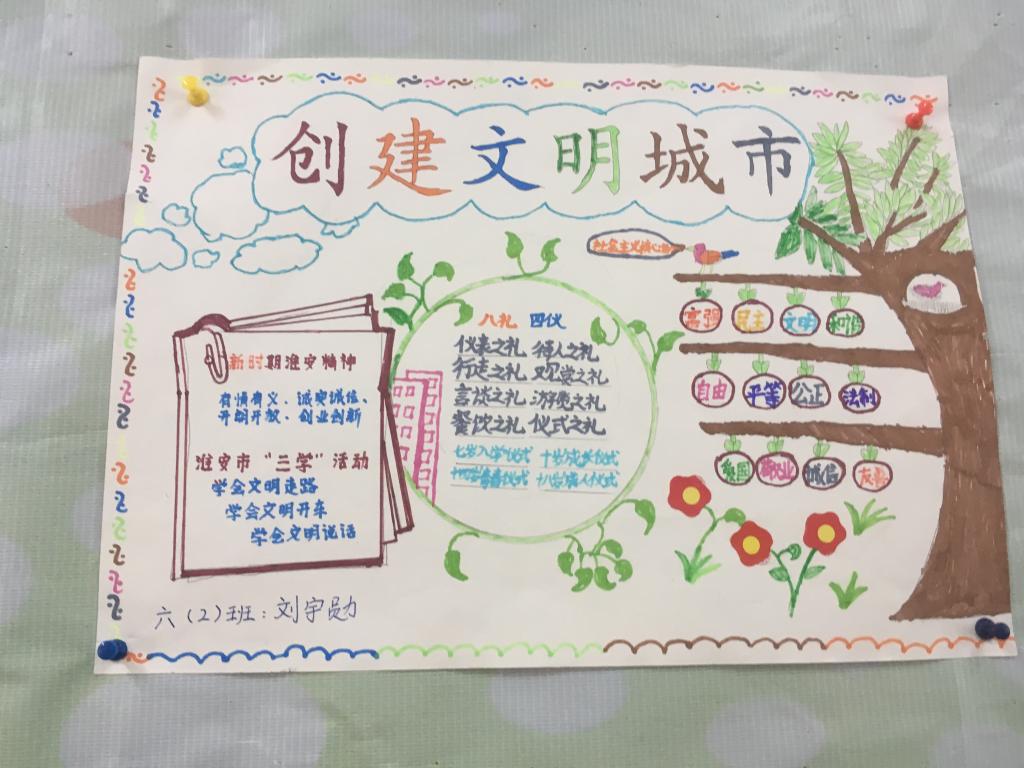 创建文明城市
社会主义核心价
富强 民主 文明 和谐
自由 平等 公正 法制
爱国 敬业 诚信 友善
新时期淮安精神
有情有义、诚实诚信、
开明开放、创业创新
淮安市“三学”活动
学会文明走路
学会文明开车
学会文明说话
八礼 四仪
仪表之礼 待人之礼
行走之礼 观赏之礼
言谈之礼 游览之礼
餐饮之礼 仪式之礼
七岁入学仪式 十岁成长仪式
十四岁青春仪式 十八岁成人仪式
六(2)班:刘宇勋